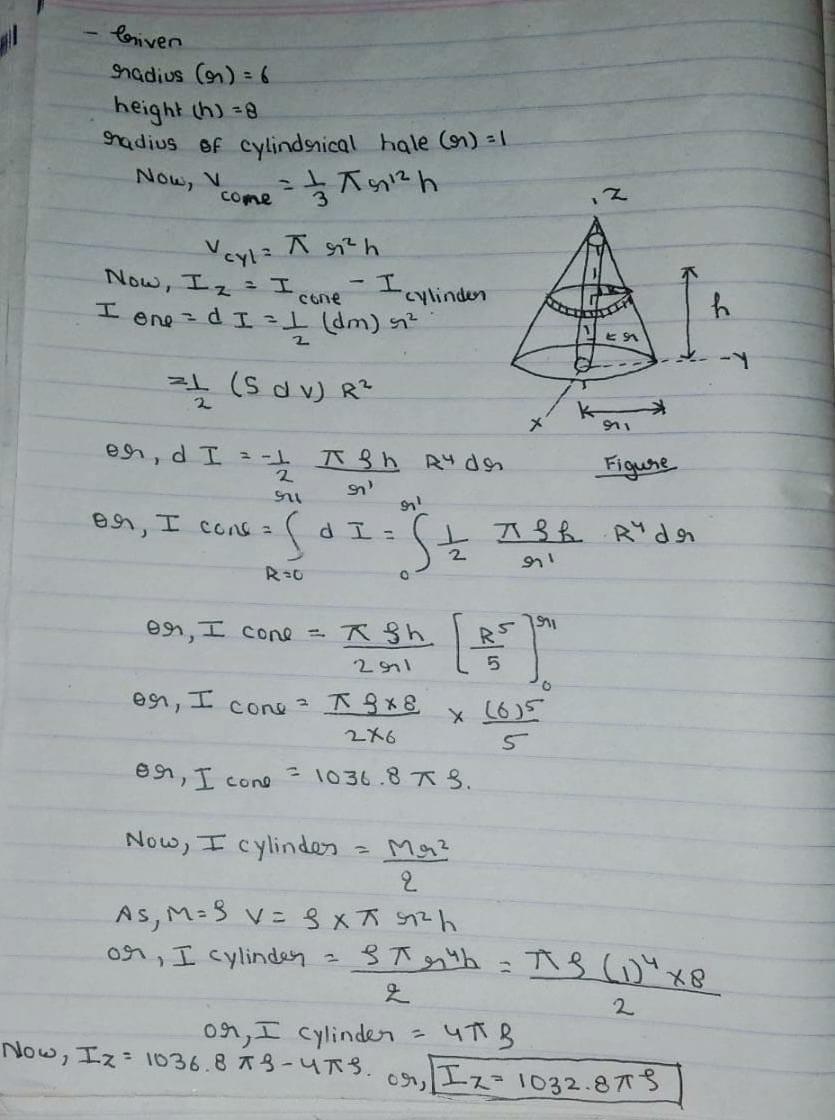 - Given
radius (r) = 6
height (h) = 8
radius of cylindrical hale (r) = 1
Now, V cone = 1/3 π r1² h
V cyl = π r² h
Now, I z = I cone - I cylinder
I one = d I = 1/2 (dm) r²
= 1/2 (S d v) R²
or, d I = -1/2 πSh/r' R⁴ dr
or, I cone = ∫ R=0 r1 d I = ∫ 0 r' 1/2 πSh/r1 R⁴ dr
or, I cone = πSh/2r1 [R⁵/5] 0 r1
or, I cone = πS×8/2×6 × (6)5/5
or, I cone = 1036.8 π S.
Now, I cylinder = Mr²/2
As, M = S V = S × π r² h
or, I cylinder = Sπr⁴h/2 = πS(1)⁴×8/2
or, I cylinder = 4πS
Now, Iz = 1036.8 πS - 4πS. or, Iz = 1032.8πS
Z
h
r
Y
X
r1
Figure